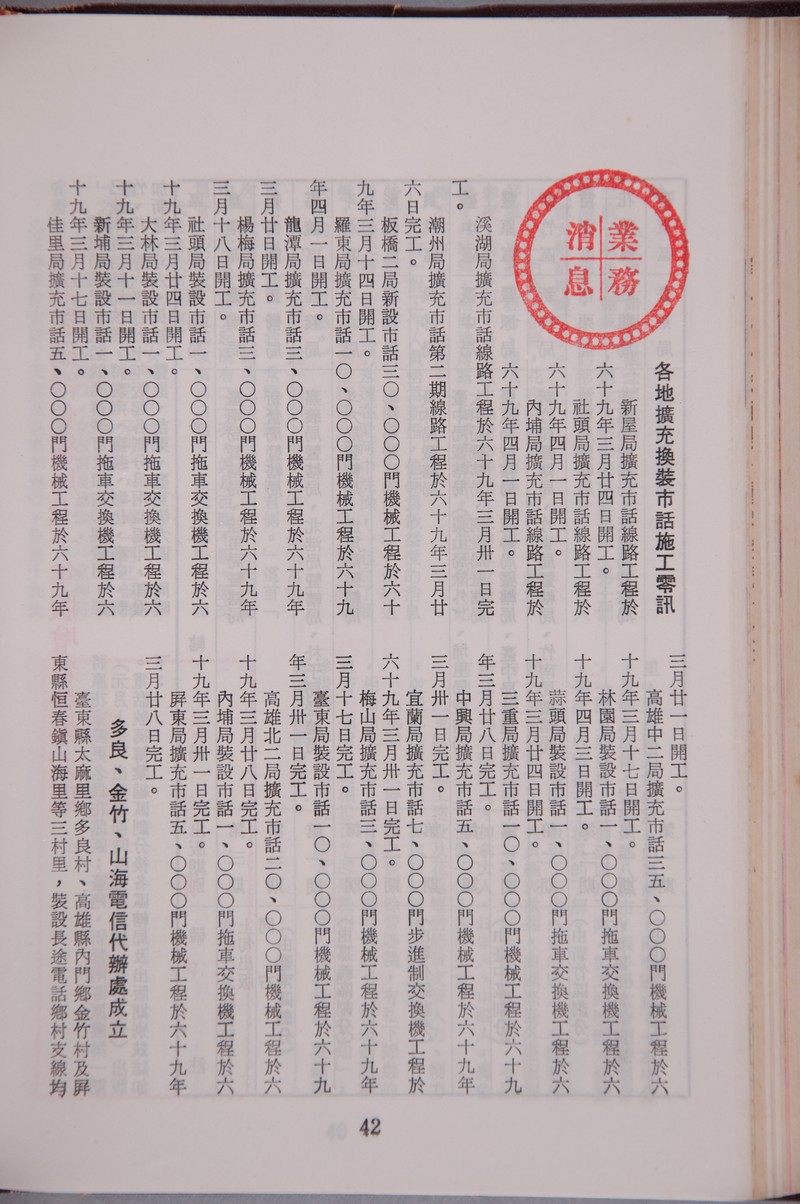 業務
消息
各地擴充換裝市話施工零訊
新屋局擴充市話線路工程於
六十九年三月廿四日開工。
社頭局擴充市話線路工程於
六十九年四月一日開工。
內埔局擴充市話線路工程於
六十九年四月一日開工。
溪湖局擴充市話線路工程於六十九年三月卅一日完
工。
潮州局擴充市話第二期線路工程於六十九年三月廿
六日完工。
板橋二局新設市話三〇、〇〇〇門機械工程於六十
九年三月十四日開工。
羅東局擴充市話一〇、〇〇〇門機械工程於六十九
年四月一日開工。
龍潭局擴充市話三、〇〇〇門機械工程於六十九年
三月廿日開工。
楊梅局擴充市話三、〇〇〇門機械工程於六十九年
三月十八日開工。
社頭局裝設市話一、〇〇〇門拖車交換機工程於六
十九年三月廿四日開工。
大林局裝設市話一、〇〇〇門拖車交換機工程於六
十九年三月十一日開工。
新埔局裝設市話一、〇〇〇門拖車交換機工程於六
十九年三月十七日開工。
佳里局擴充市話五、〇〇〇門機械工程於六十九年
三月廿一日開工。
高雄中二局擴充市話三五、〇〇〇門機械工程於六
十九年三月十七日開工。
林園局裝設市話一、〇〇〇門拖車交換機工程於六
十九年四月三日開工。
蒜頭局裝設市話一、〇〇〇門拖車交換機工程於六
十九年三月廿四日開工。
三重局擴充市話一〇、〇〇〇門機械工程於六十九
年三月廿八日完工。
中興局擴充市話五、〇〇〇門機械工程於六十九年
三月卅一日完工。
宜蘭局擴充市話七、〇〇〇門步進制交換機工程於
六十九年三月卅一日完工。
梅山局擴充市話三、〇〇〇門機械工程於六十九年
三月十七日完工。
臺東局裝設市話一〇、〇〇〇門機械工程於六十九
年三月卅一日完工。
高雄北二局擴充市話二〇、〇〇〇門機械工程於六
十九年三月廿八日完工。
內埔局裝設市話一、〇〇〇門拖車交換機工程於六
十九年三月卅一日完工。
屏東局擴充市話五、〇〇〇門機械工程於六十九年
三月廿八日完工。
多良、金竹、山海電信代辦處成立
臺東縣太麻里鄉多良村、高雄縣內門鄉金竹村及屏
東縣恒春鎮山海里等三村里，裝設長途電話鄉村支線均
42